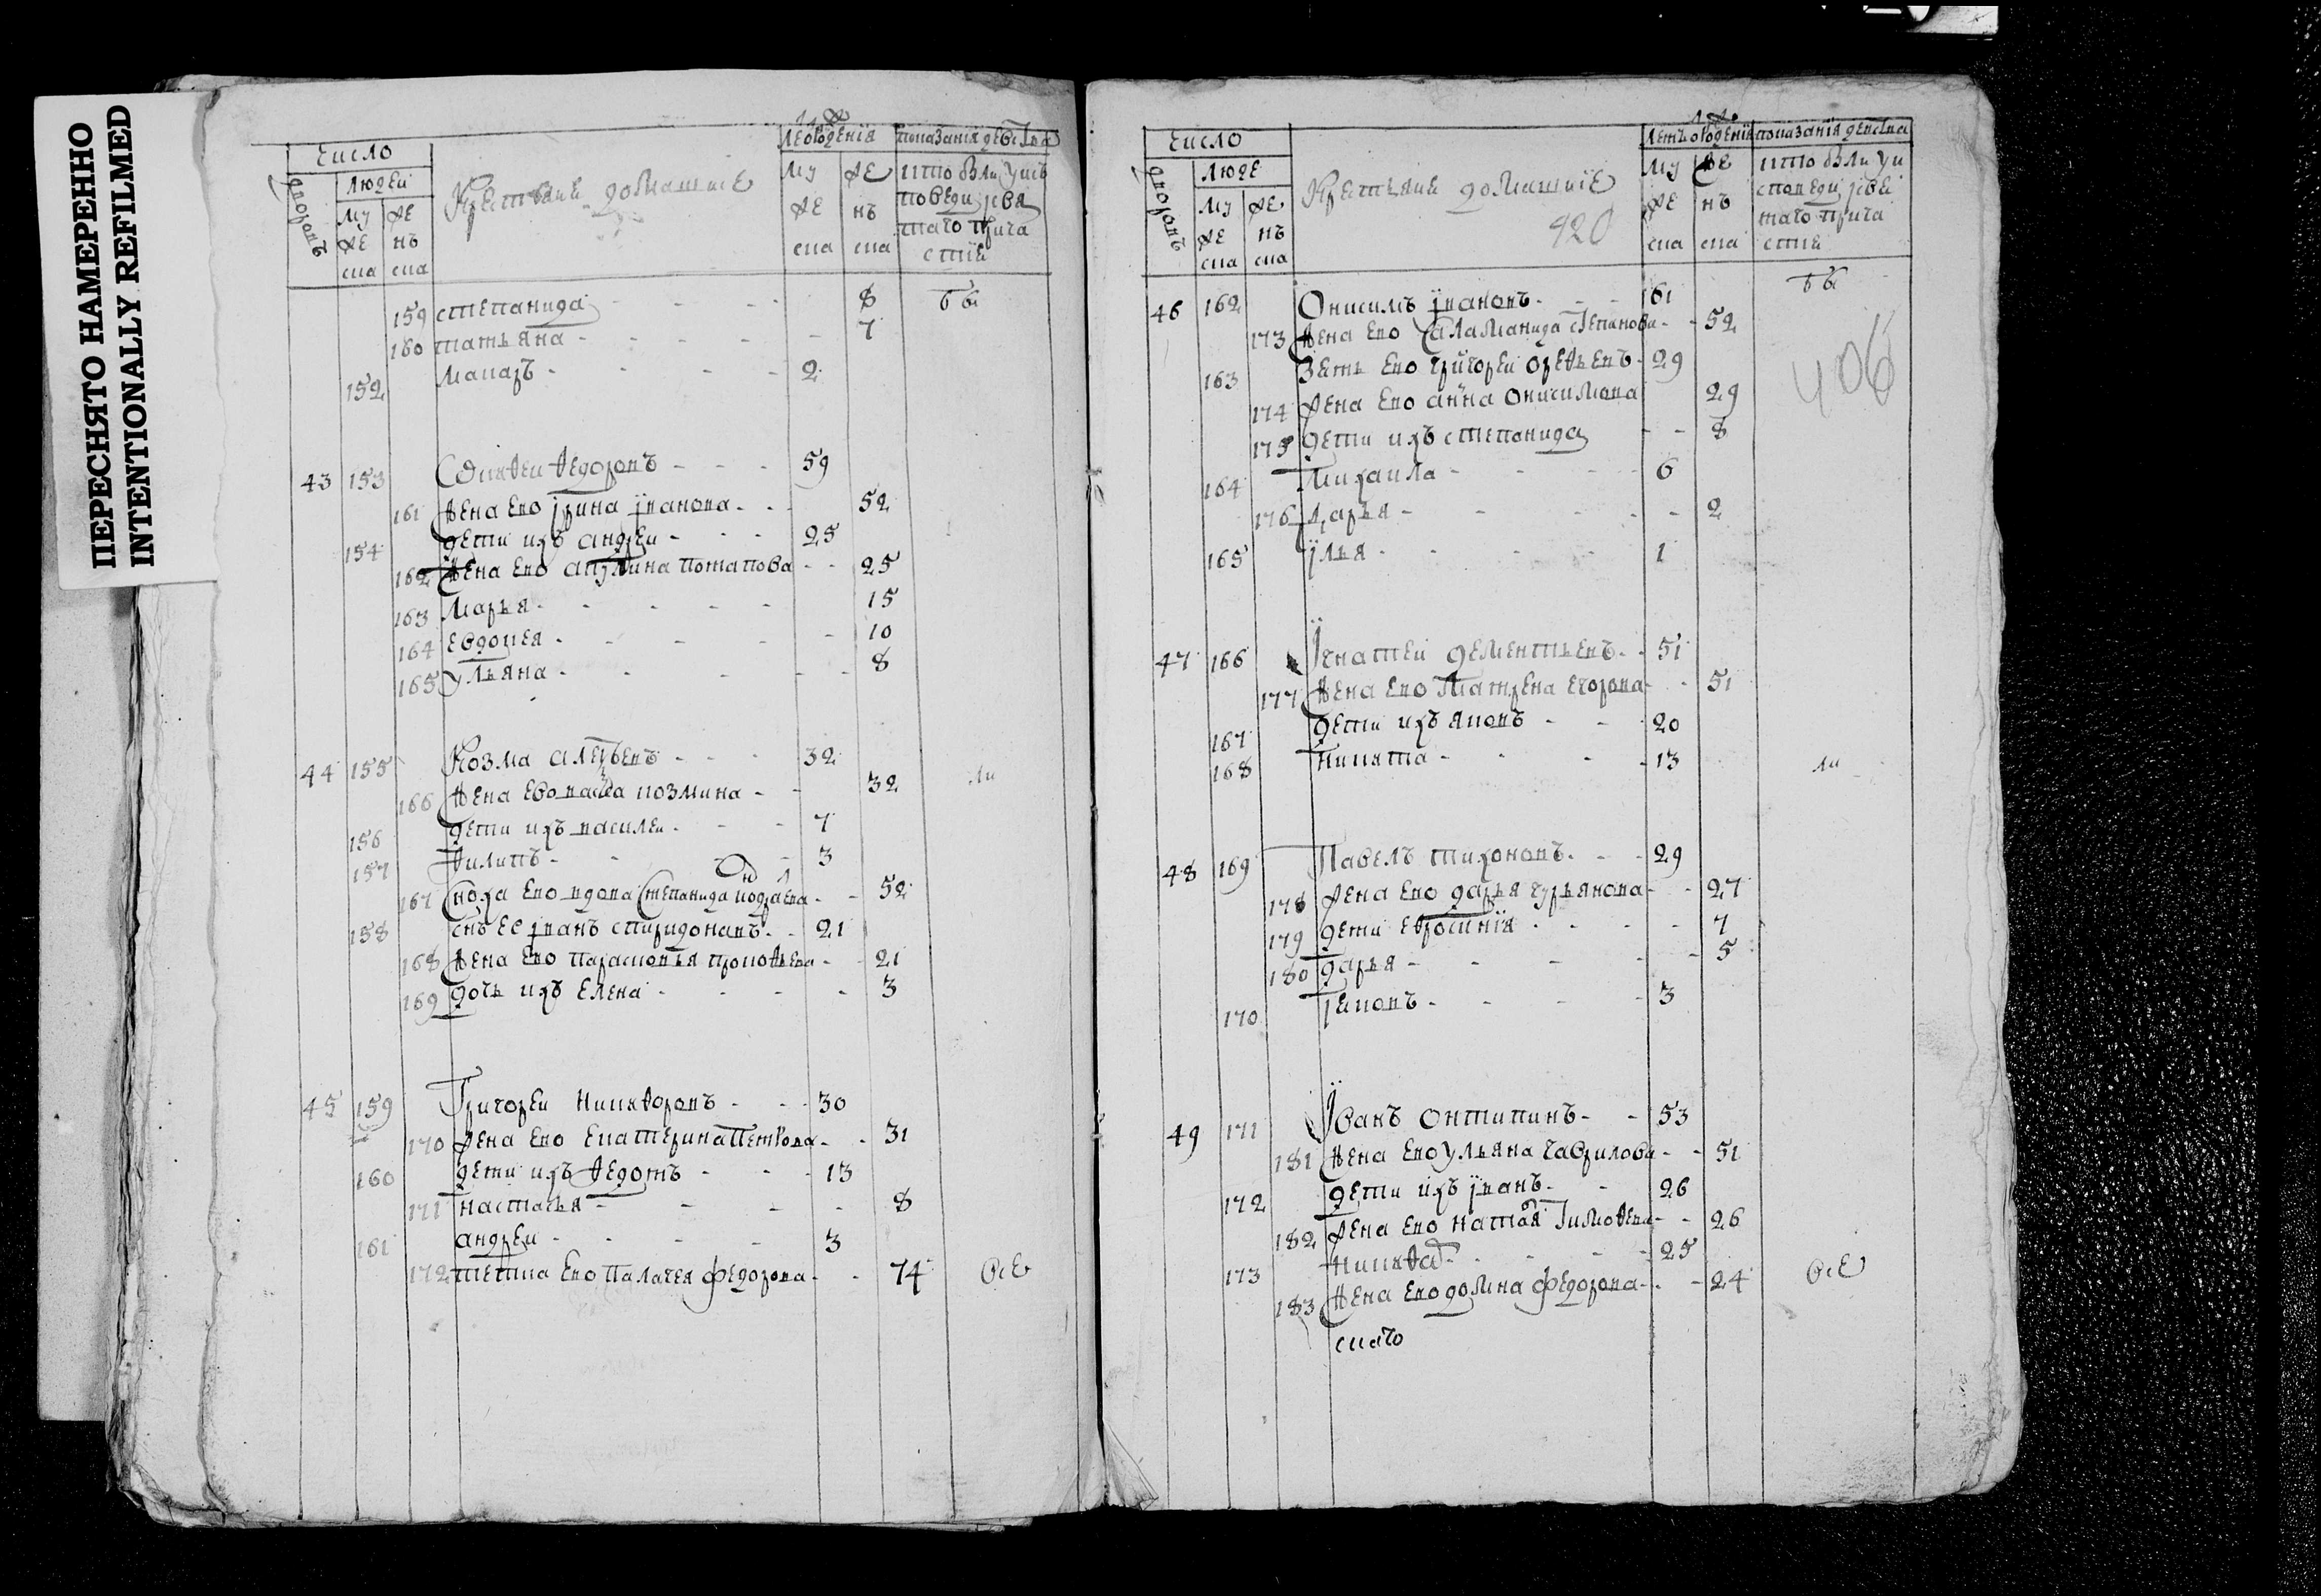 ПЕРЕСНЯТО НАМЕРЕННО
INTENTIONALLY REFILMED
число
дворовъ
людеи
му
же
ска
же
нъ
ска
Крестьяне домашние
му
же
ска
же
нъ
ска
показания действа
кто были у ис
поведи и свя
таго прича
стия
159 степанида - - - 8 бы
160 татьяна - - - 7
152 макаръ - - - 2
43 153 федоровъ - - - 59
161 жена ево ирина иванова - - 52
154 дети ихъ андреи - - - 25
162 жена ево акулина потапова - - 25
163 марья - - - 15
164 евдокея - - - 10
165 ульяна - - - 8
44 155 Козма - - - 32 ли
166 жена ево козмина - - 32
156 дети ихъ василеи - - - 7
157 филипъ - - - 3
167 сноха ево вдова степанида - - 52
158 снъ ее иванъ спиридоновъ - - 21
168 жена ево парасковья прокофьева - - 21
169 дочь ихъ елена - - - 3
45 159 Григореи никифоровъ - - - 30
170 жена ево екатерина петрова - - 31
160 дети ихъ федотъ - - - 13
171 настасья - - - 8
161 андреи - - - 3
172 тетка ево палагея федорова - - 74 все
число
дворовъ
люде
му
же
ска
же
нъ
ска
Крестьяне домашние
420
летъ от рождения
му
же
ска
же
нъ
ска
показания действа
кто были у и
споведи и свя
таго прича
стия
46 162 Онисимъ ивановъ - - 61 бы
173 жена ево саламанида степанова - - 52
163 зеть ево григореи - 29
406
174 жена ево анна онисимова 29
175 дети ихъ степанида - - 8
164 михаила - - - 6
176 дарья - - - 2
165 илья - - - 1
47 166 Игнатеи дементьевъ - - 51
177 жена ево матрена егорова - - 51
167 дети ихъ яковъ - - 20
168 никита - - - 13 ли
48 169 Павелъ тихоновъ - - - 29
178 жена ево дарья гурьянова - - 27
179 дети ефросиния - - - 7
180 дарья - - - 5
170 - - - 3
49 171 Иванъ онтипинъ - - 53
181 жена ево ульяна гаврилова - - 51
172 дети ихъ иванъ - - 26
182 жена ево тимофеева - - 26
173 - - - 25
183 жена ево домна федорова - - 24 все
скаго